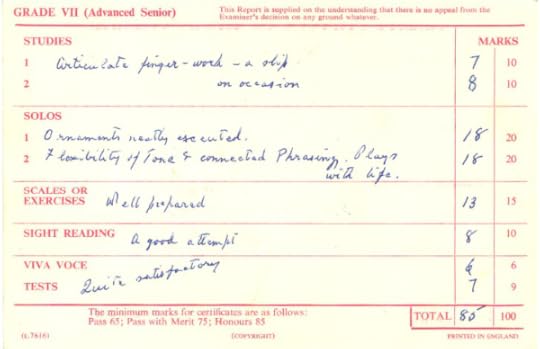 GRADE VII (Advanced Senior)
This Report is supplied on the understanding that there is no appeal from the
Examiner's decision on any ground whatever.
STUDIES MARKS
1 Articulate finger-work - a slip 7 10
2 on occasion 8 10
SOLOS
1 Ornaments neatly executed. 18 20
2 Flexibility of Tone & connected Phrasing. Plays 18 20
with life.
SCALES OR
EXERCISES Well prepared 13 15
SIGHT READING A good attempt 8 10
VIVA VOCE 6 6
TESTS Quite satisfactory 7 9
The minimum marks for certificates are as follows:
Pass 65; Pass with Merit 75; Honours 85
TOTAL 85 100
(L.7616) (COPYRIGHT) PRINTED IN ENGLAND